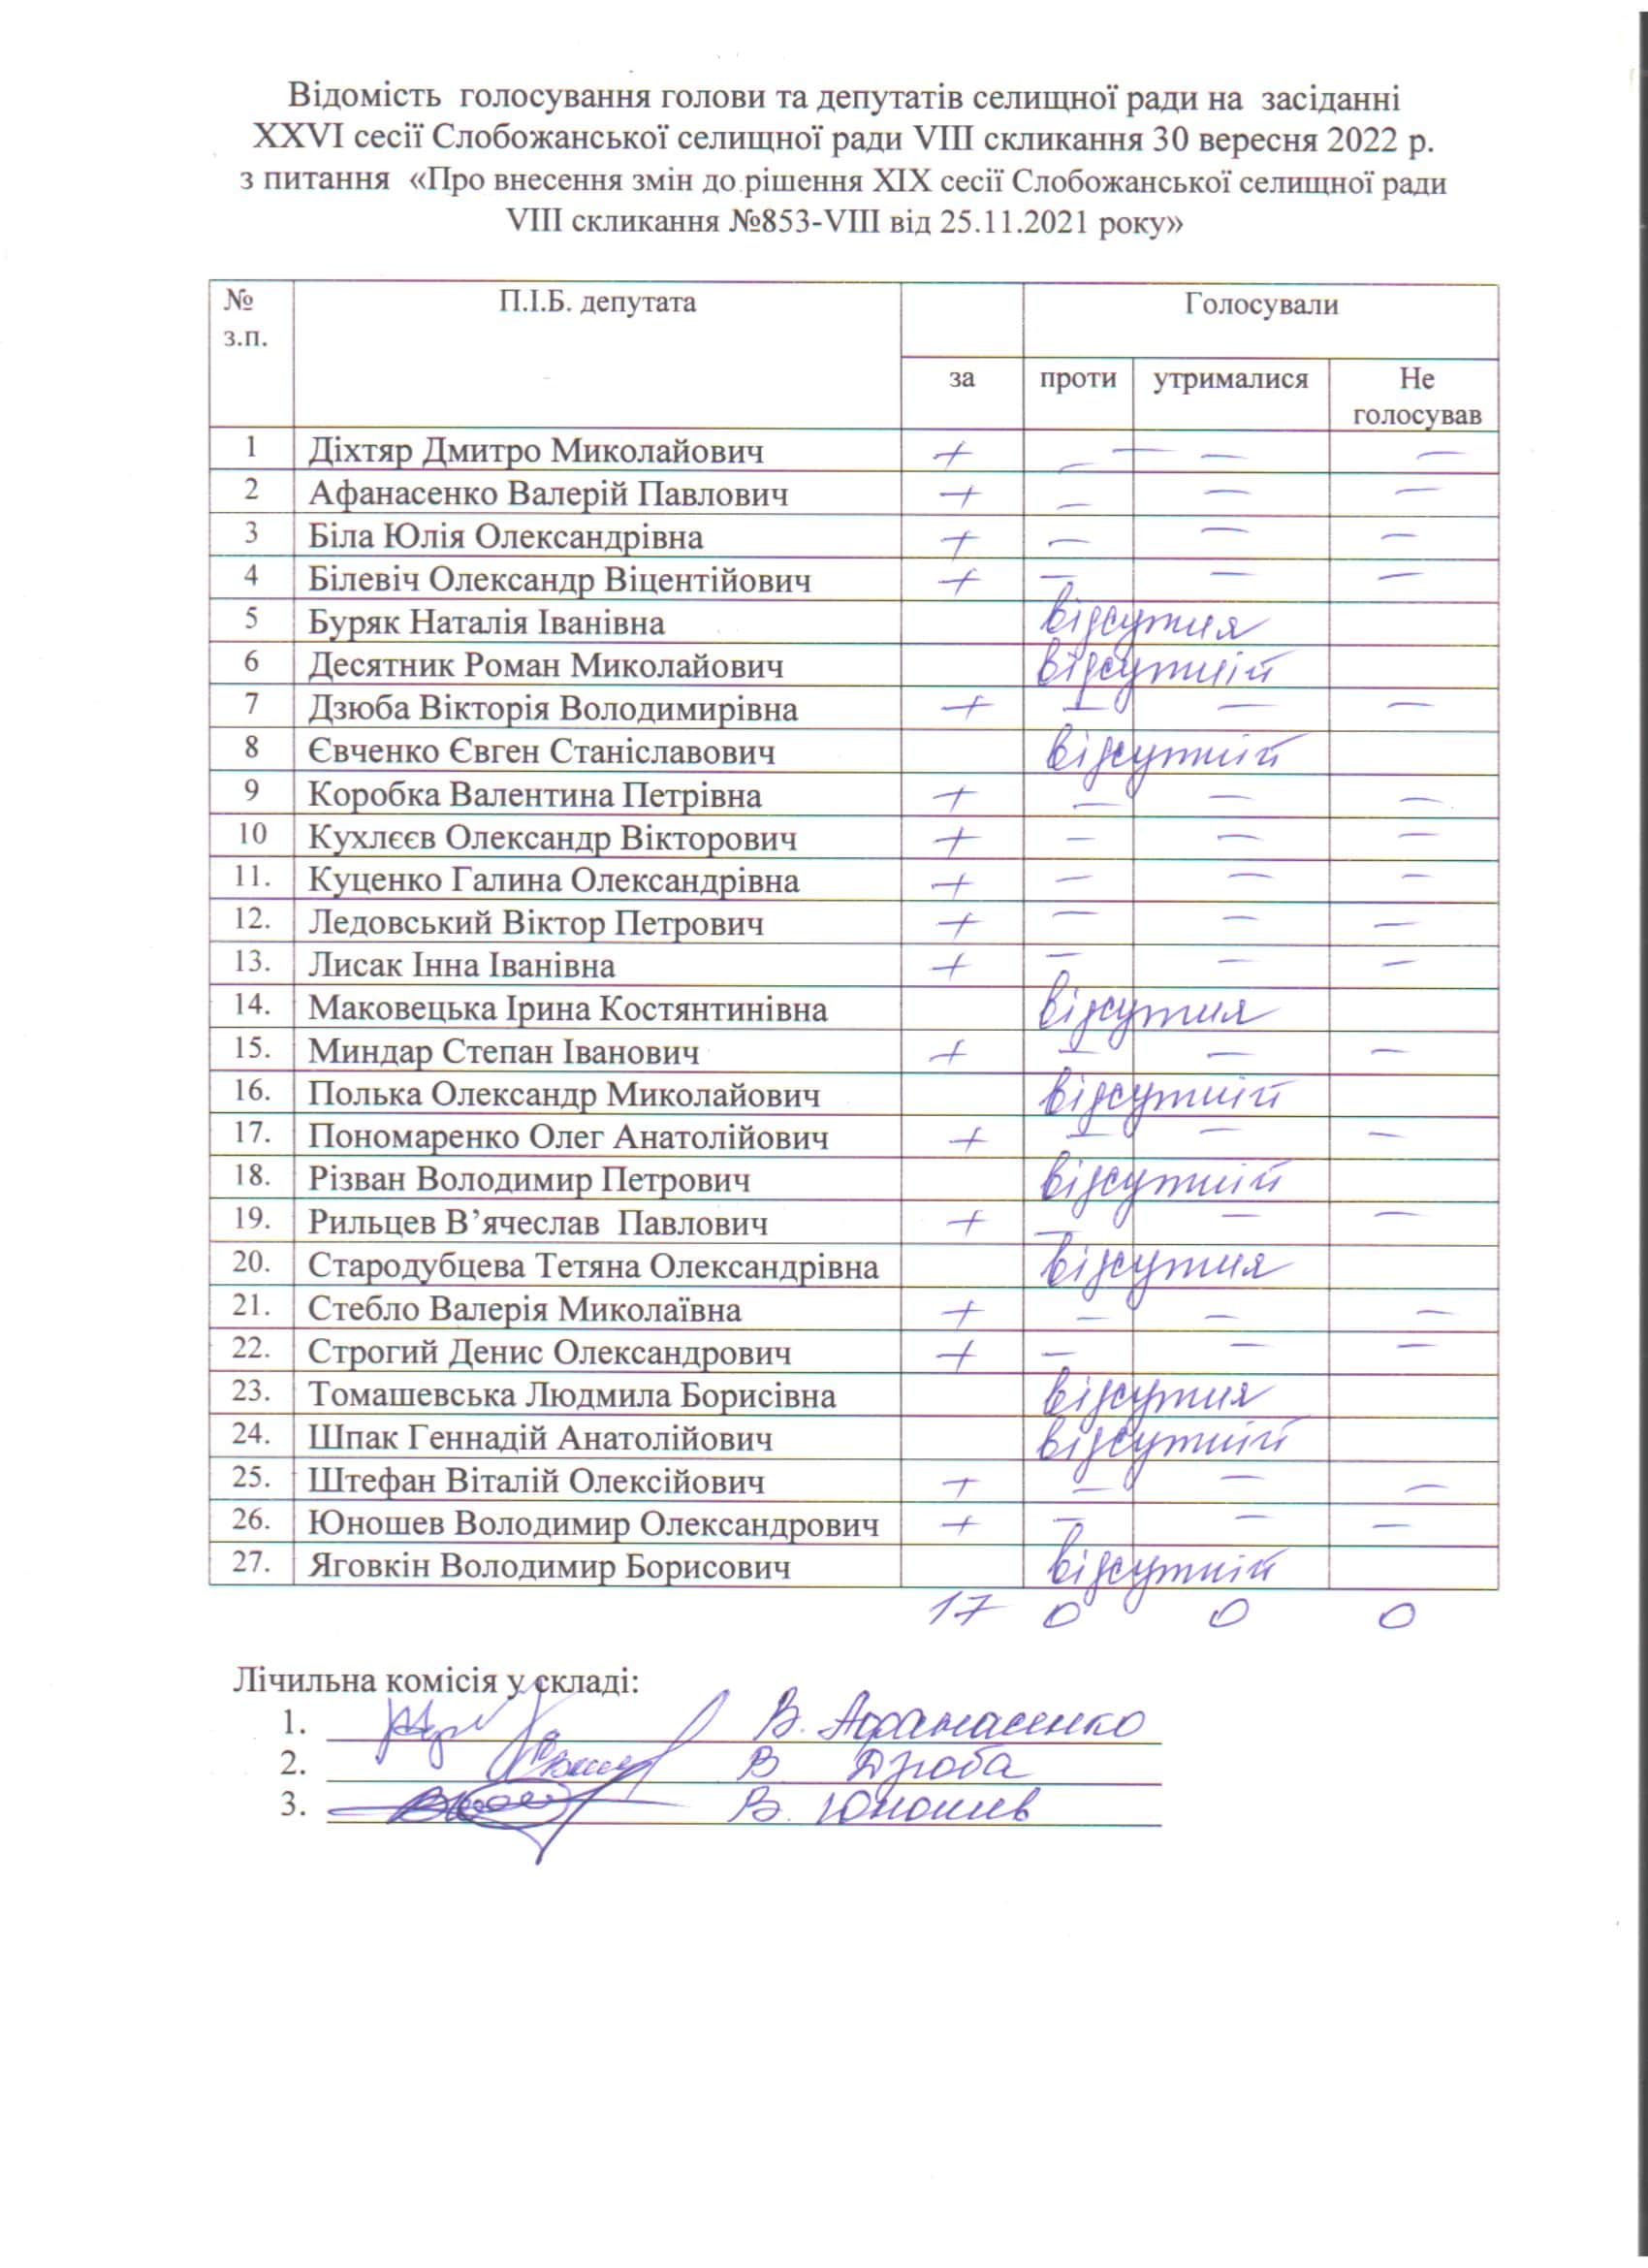 Відомість голосування голови та депутатів селищної ради на засіданні
XXVI сесії Слобожанської селищної ради VIII скликання 30 вересня 2022 р.
з питання «Про внесення змін до рішення XIX сесії Слобожанської селищної ради
VIII скликання №853-VIII від 25.11.2021 року»
№ П.І.Б. депутата Голосували
з.п.
за проти утрималися Не
голосував
1 Діхтяр Дмитро Миколайович + — — —
2 Афанасенко Валерій Павлович + — — —
3 Біла Юлія Олександрівна + — — —
4 Білевіч Олександр Віцентійович + — — —
5 Буряк Наталія Іванівна відсутня
6 Десятник Роман Миколайович відсутній
7 Дзюба Вікторія Володимирівна + — — —
8 Євченко Євген Станіславович відсутній
9 Коробка Валентина Петрівна + — — —
10 Кухлєєв Олександр Вікторович + — — —
11. Куценко Галина Олександрівна + — — —
12. Ледовський Віктор Петрович + — — —
13. Лисак Інна Іванівна + — — —
14. Маковецька Ірина Костянтинівна відсутня
15. Миндар Степан Іванович + — — —
16. Полька Олександр Миколайович відсутній
17. Пономаренко Олег Анатолійович + — — —
18. Різван Володимир Петрович відсутній
19. Рильцев В’ячеслав Павлович + — — —
20. Стародубцева Тетяна Олександрівна відсутня
21. Стебло Валерія Миколаївна + — — —
22. Строгий Денис Олександрович + — — —
23. Томашевська Людмила Борисівна відсутня
24. Шпак Геннадій Анатолійович відсутній
25. Штефан Віталій Олексійович + — — —
26. Юношев Володимир Олександрович + — — —
27. Яговкін Володимир Борисович відсутній
17 0 0 0
Лічильна комісія у складі:
1. В. Афанасенко
2. В Дзюба
3. В. Юношев